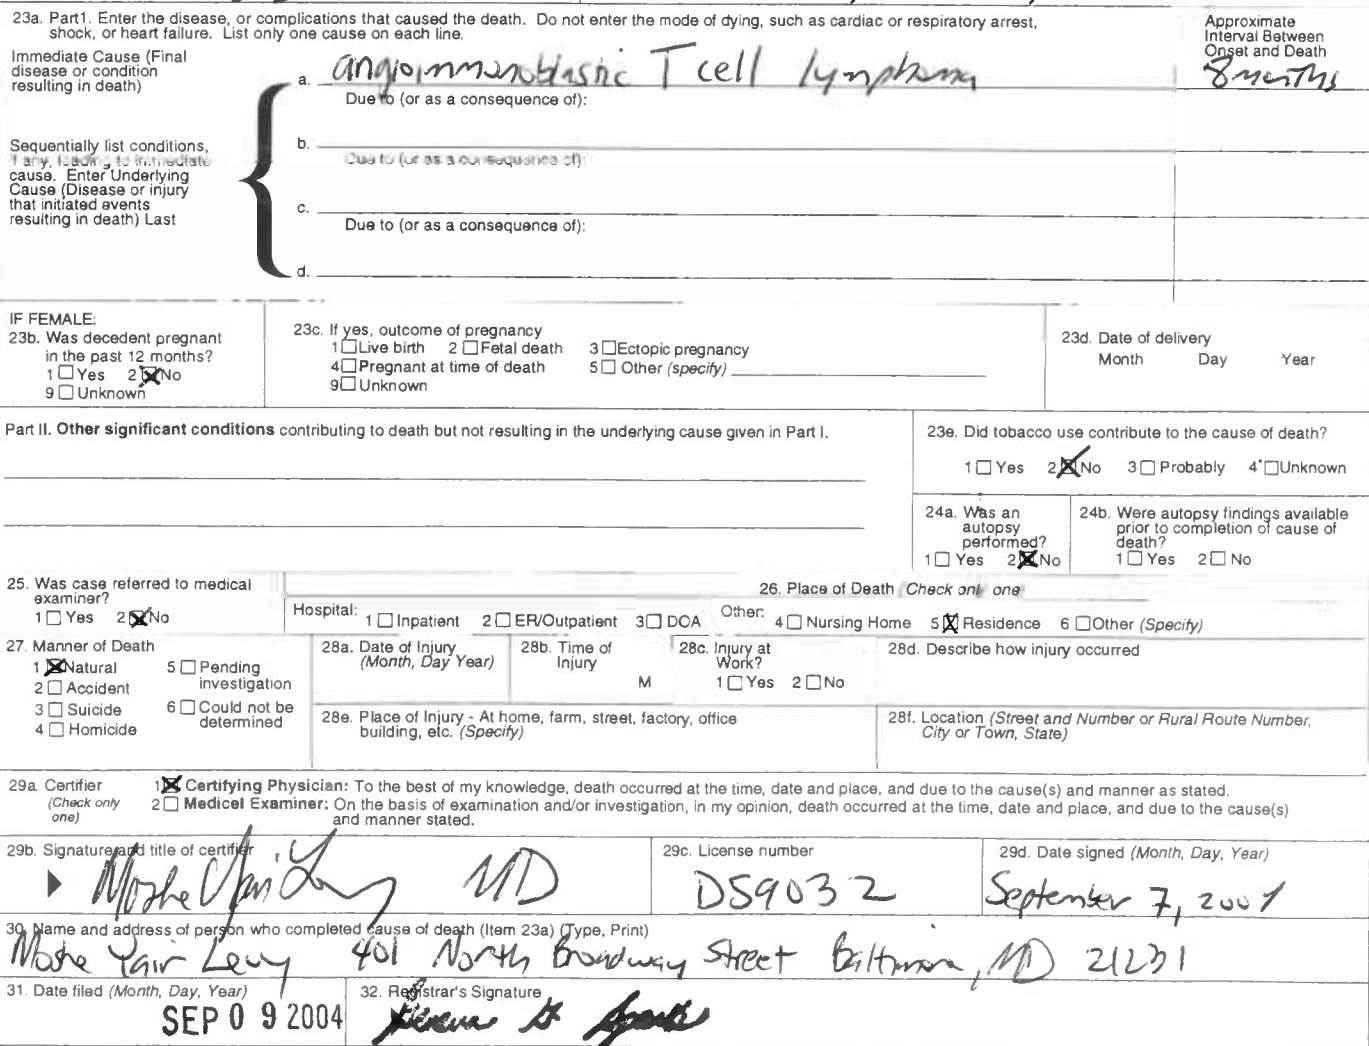 23a. Part1. Enter the disease, or complications that caused the death. Do not enter the mode of dying, such as cardiac or respiratory arrest,
shock, or heart failure. List only one cause on each line.
Approximate
Interval Between
Onset and Death
Immediate Cause (Final
disease or condition
resulting in death)
a. angioimmunoblastic T cell lymphoma
8 months
Due to (or as a consequence of):
Sequentially list conditions,
if any, leading to immediate
cause. Enter Underlying
Cause (Disease or injury
that initiated events
resulting in death) Last
b.
Due to (or as a consequence of):
c.
Due to (or as a consequence of):
d.
IF FEMALE:
23b. Was decedent pregnant
in the past 12 months?
1 Yes 2 No
9 Unknown
23c. If yes, outcome of pregnancy
1 Live birth 2 Fetal death 3 Ectopic pregnancy
4 Pregnant at time of death 5 Other (specify)
9 Unknown
23d. Date of delivery
Month Day Year
Part II. Other significant conditions contributing to death but not resulting in the underlying cause given in Part I.
23e. Did tobacco use contribute to the cause of death?
1 Yes 2 No 3 Probably 4 Unknown
24a. Was an
autopsy
performed?
1 Yes 2 No
24b. Were autopsy findings available
prior to completion of cause of
death?
1 Yes 2 No
25. Was case referred to medical
examiner?
1 Yes 2 No
26. Place of Death (Check only one
Hospital: 1 Inpatient 2 ER/Outpatient 3 DOA Other: 4 Nursing Home 5 Residence 6 Other (Specify)
27. Manner of Death
1 Natural 5 Pending
investigation
2 Accident
3 Suicide 6 Could not be
determined
4 Homicide
28a. Date of Injury
(Month, Day Year)
28b. Time of
Injury
M
28c. Injury at
Work?
1 Yes 2 No
28d. Describe how injury occurred
28e. Place of Injury - At home, farm, street, factory, office
building, etc. (Specify)
28f. Location (Street and Number or Rural Route Number,
City or Town, State)
29a. Certifier
(Check only
one)
1 Certifying Physician: To the best of my knowledge, death occurred at the time, date and place, and due to the cause(s) and manner as stated.
2 Medical Examiner: On the basis of examination and/or investigation, in my opinion, death occurred at the time, date and place, and due to the cause(s)
and manner stated.
29b. Signature and title of certifier
Moshe Yair Levy MD
29c. License number
D59032
29d. Date signed (Month, Day, Year)
September 7, 2004
30. Name and address of person who completed cause of death (Item 23a) (Type, Print)
Moshe Yair Levy 401 North Broadway Street Baltimore, MD 21231
31. Date filed (Month, Day, Year)
SEP 09 2004
32. Registrar's Signature